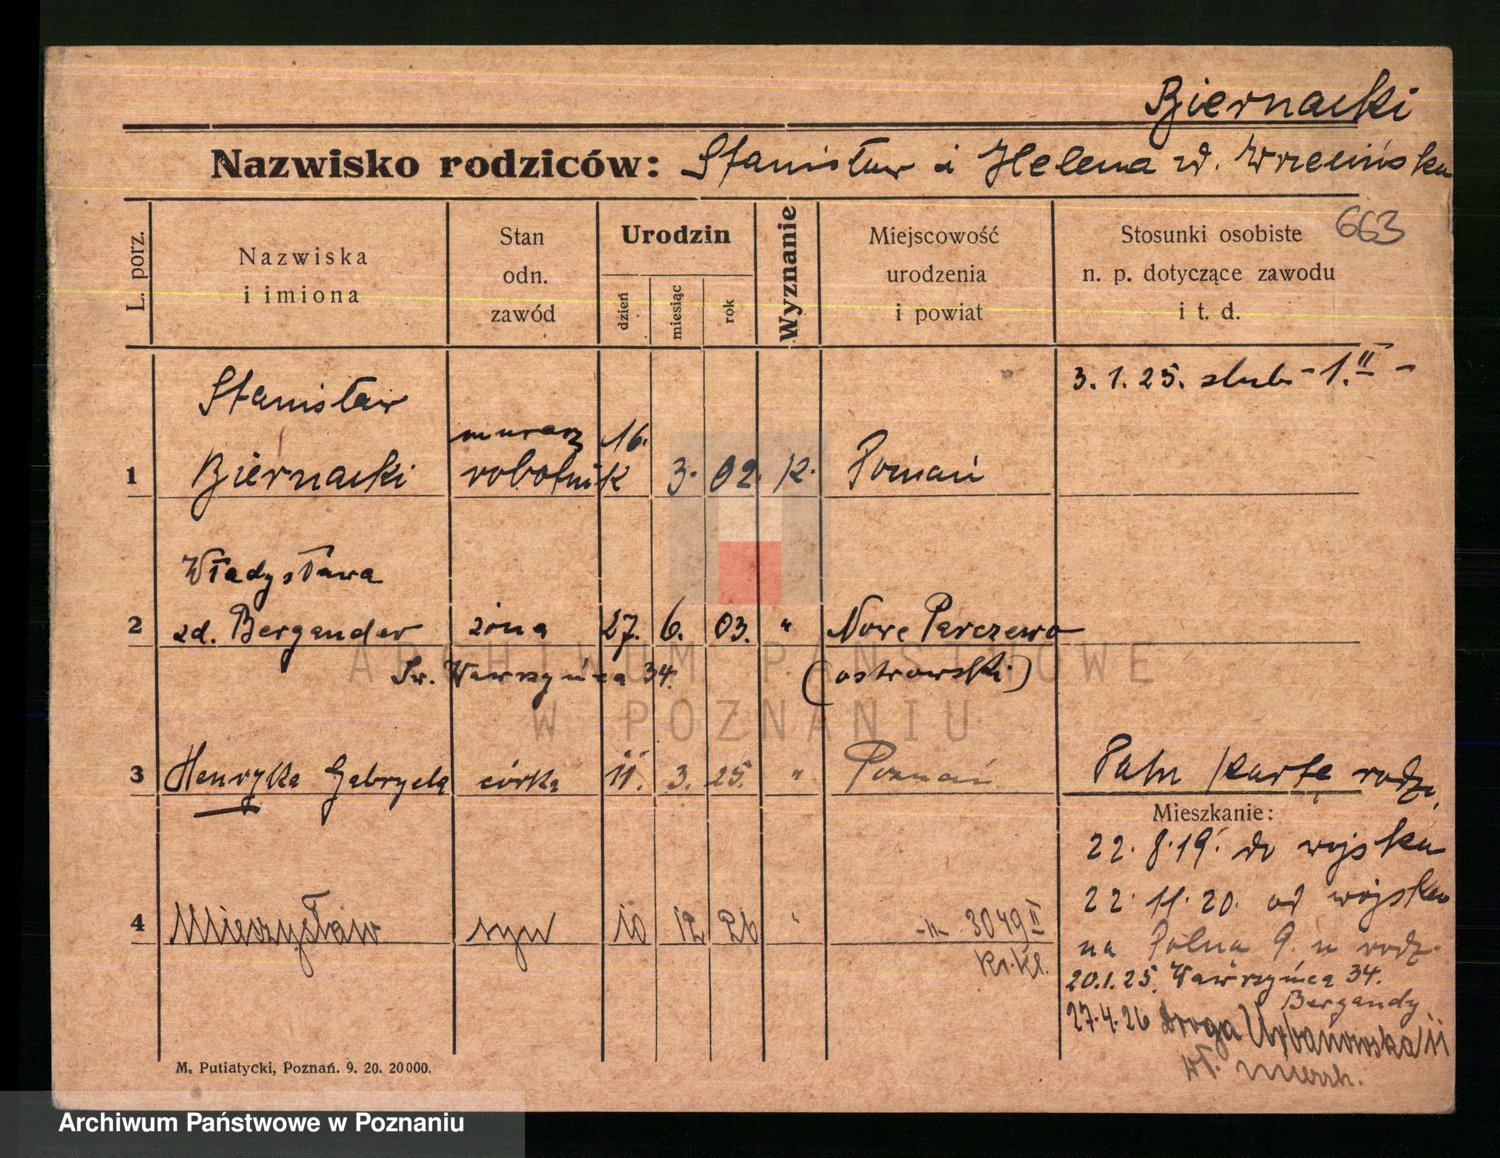 Biernacki
Nazwisko rodziców: Stanisław i Helena
663
L. porz.
Nazwiska
i imiona
Stan
odn.
zawód
Urodzin
dzień
miesiąc
rok
Wyznanie
Miejscowość
urodzenia
i powiat
Stosunki osobiste
n. p. dotyczące zawodu
i t. d.
3.1.25. ślub - 1. II -
Stanisław
murarz 16.
1 Biernacki robotnik 3. 02. k. Poznań
Władysława
2 zd. Bergander żona 27. 6. 03. " Nowe Parczewo
Św. Wawrzyńca 34. (ostrowski)
3 Henryka Gabryela córka 11. 3. 25. " Poznań
Patrz kartę rodz.
Mieszkanie:
22.8.19. do wojska
22.11.20. od wojska
4 Mieczysław syn 10 12 26 " -"- 3049 II
Kr.Kl.
na Polna 9. u rodz.
20.1.25. Wawrzyńca 34.
Bergandy
27.4.26 Droga Urbanowska 11
wł. mieszk.
M. Putiatycki, Poznań. 9. 20. 20000.
ARCHIWUM PAŃSTWOWE
W POZNANIU
Archiwum Państwowe w Poznaniu